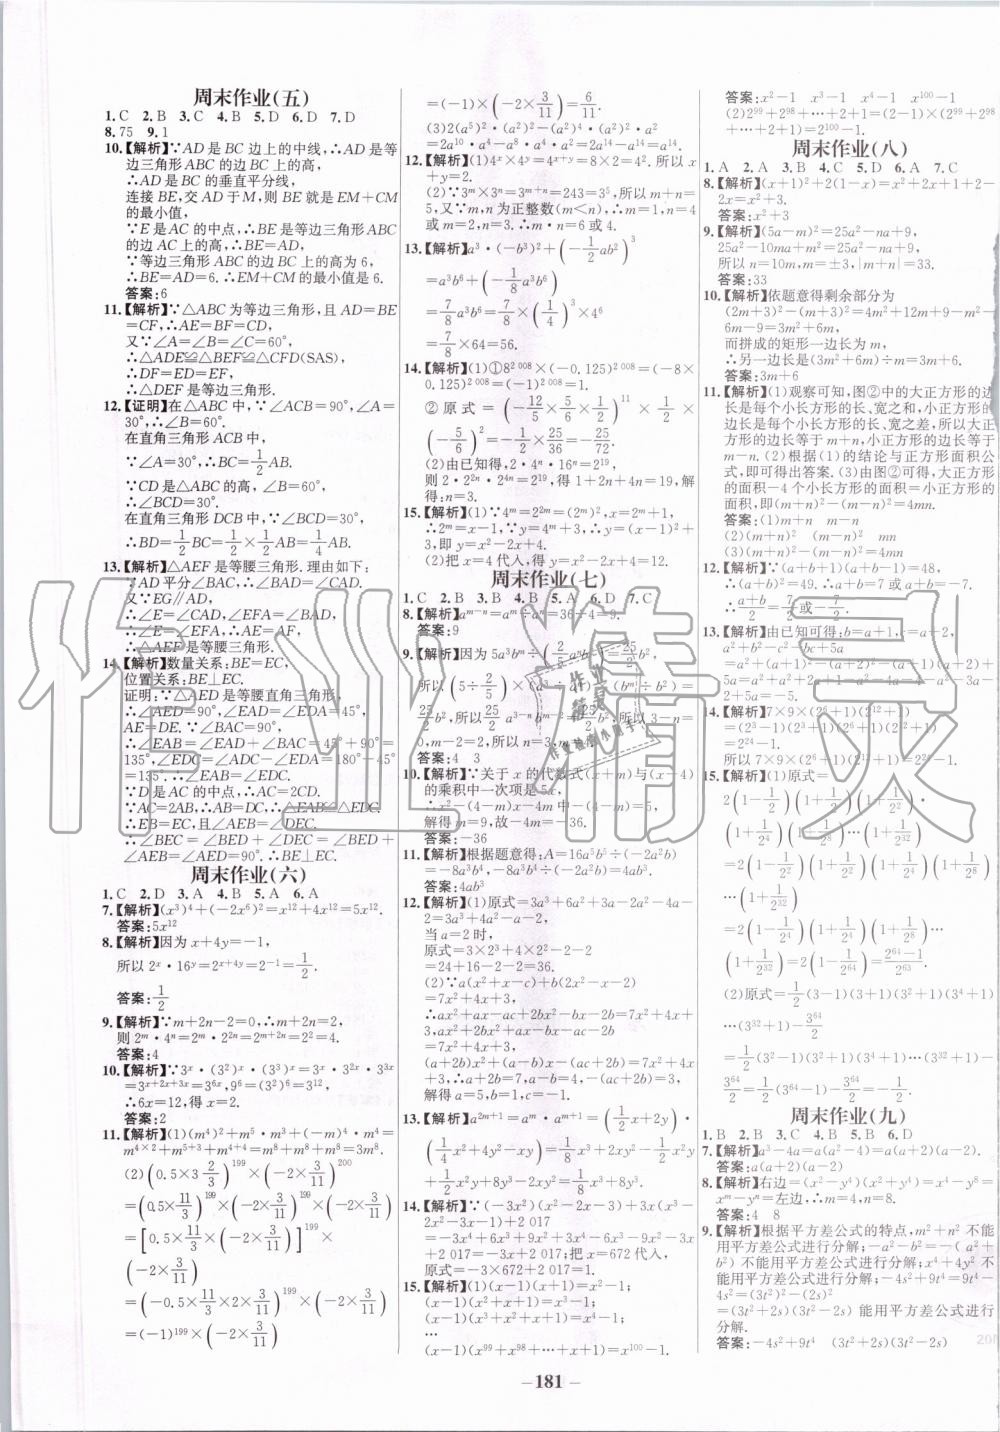 周末作业(五)
1.C 2.B 3.C 4.B 5.D 6.D 7.D
8.75 9.1
10.【解析】∵AD是BC边上的中线,∴AD是等
边三角形ABC的边BC上的高,
∴AD是BC的垂直平分线,
连接BE,交AD于M,则BE就是EM+CM
的最小值,
∵E是AC的中点,∴BE是等边三角形ABC
的边AC上的高,∴BE=AD,
∵等边三角形ABC的边BC上的高为6,
∴BE=AD=6.∴EM+CM的最小值是6.
答案:6
11.【解析】∵△ABC为等边三角形,且AD=BE
=CF,∴AE=BF=CD,
又∵∠A=∠B=∠C=60°,
∴△ADE≌△BEF≌△CFD(SAS),
∴DF=ED=EF,
∴△DEF是等边三角形.
12.【证明】在△ABC中,∵∠ACB=90°,∠A=
30°,∴∠B=60°.
在直角三角形ACB中,
∵∠A=30°,∴BC=1/2AB.
∵CD是△ABC的高,∠B=60°,
∴∠BCD=30°.
在直角三角形DCB中,∵∠BCD=30°,
∴BD=1/2BC=1/2×1/2AB=1/4AB.
13.【解析】△AEF是等腰三角形.理由如下:
∵AD平分∠BAC,∴∠BAD=∠CAD.
又∵EG∥AD,
∴∠E=∠CAD,∠EFA=∠BAD,
∴∠E=∠EFA,∴AE=AF,
∴△AEF是等腰三角形.
14.【解析】数量关系:BE=EC,
位置关系:BE⊥EC.
证明:∵△AED是等腰直角三角形,
∴∠AED=90°,∠EAD=∠EDA=45°,
AE=DE.∵∠BAC=90°,
∴∠EAB=∠EAD+∠BAC=45°+90°=
135°,∠EDC=∠ADC-∠EDA=180°-45°
=135°.∴∠EAB=∠EDC.
∵D是AC的中点,∴AC=2CD.
∵AC=2AB,∴AB=DC.∴△EAB≌△EDC.
∴EB=EC,且∠AEB=∠DEC.
∴∠BEC=∠BED+∠DEC=∠BED+
∠AEB=∠AED=90°.∴BE⊥EC.
周末作业(六)
1.C 2.D 3.A 4.B 5.A 6.A
7.【解析】(x³)⁴+(-2x⁶)²=x¹²+4x¹²=5x¹².
答案:5x¹²
8.【解析】因为x+4y=-1,
所以2ˣ·16ʸ=2ˣ⁺⁴ʸ=2⁻¹=1/2.
答案:1/2
9.【解析】∵m+2n-2=0,∴m+2n=2,
则2ᵐ·4ⁿ=2ᵐ·2²ⁿ=2ᵐ⁺²ⁿ=2²=4.
答案:4
10.【解析】∵3ˣ·(3²)ˣ·(3³)ˣ=3ˣ·3²ˣ·3³ˣ
=3ˣ⁺²ˣ⁺³ˣ=3⁶ˣ,9⁶=(3²)⁶=3¹²,
∴6x=12,得x=2.
答案:2
11.【解析】(1)(m⁴)²+m⁵·m³+(-m)⁴·m⁴=
m⁴ˣ²+m⁵⁺³+m⁴⁺⁴=m⁸+m⁸+m⁸=3m⁸.
(2)(0.5×3 2/3)¹⁹⁹×(-2×3/11)²⁰⁰
=(0.5×11/3)¹⁹⁹×(-2×3/11)¹⁹⁹×(-2×3/11)
=[0.5×11/3×(-2×3/11)]¹⁹⁹×(-2×3/11)
=(-0.5×11/3×2×3/11)¹⁹⁹×(-2×3/11)
=(-1)¹⁹⁹×(-2×3/11)
=(-1)×(-2×3/11)=6/11.
(3)2(a⁵)²·(a²)²-(a²)²·(a²)⁴·a²
=2a¹⁰·a⁴-a⁴·a⁸·a²=2a¹⁴-a¹⁴=a¹⁴.
12.【解析】(1)4ˣ×4ʸ=4ˣ⁺ʸ=8×2=4².所以x
+y=2.
(2)∵3ᵐ×3ⁿ=3ᵐ⁺ⁿ=243=3⁵,所以m+n=
5,又∵m,n为正整数(m<n),∴m=1,n=4
或m=2,n=3.∴m·n=6或4.
13.【解析】a³·(-b³)²+(-1/2ab²)³
=a³b⁶+(-1/8a³b⁶)
=7/8a³b⁶=7/8×(1/4)³×4⁶
=7/8×64=56.
14.【解析】(1)①8²⁰⁰⁸×(-0.125)²⁰⁰⁸=(-8×
0.125)²⁰⁰⁸=(-1)²⁰⁰⁸=1.
②原式=(-12/5×5/6×1/2)¹¹×1/2×
(-5/6)²=-1/2×25/36=-25/72.
(2)由已知得,2·4ⁿ·16ⁿ=2¹⁹,
则2·2²ⁿ·2⁴ⁿ=2¹⁹,得1+2n+4n=19,解
得:n=3.
15.【解析】(1)∵4ᵐ=2²ᵐ=(2ᵐ)²,x=2ᵐ+1,
∴2ᵐ=x-1,∵y=4ᵐ+3,∴y=(x-1)²+
3,即y=x²-2x+4.
(2)把x=4代入,得y=x²-2x+4=12.
周末作业(七)
1.C 2.B 3.B 4.B 5.A 6.D 7.C
8.【解析】aᵐ⁻ⁿ=aᵐ÷aⁿ=36÷4=9.
答案:9
9.【解析】因为5a³bᵐ÷(2/5aⁿb)=25/2b²,
答案:4 3
10.【解析】∵关于x的代数式(x+m)与(x-4)
的乘积中一次项是5x,
∴x²-(4-m)x-4m中-(4-m)=5,
解得m=9,故-4m=-36.
答案:-36
11.【解析】根据题意得:A=16a⁵b⁵÷(-2a²b)
=-8a³b⁴,-8a³b⁴÷(-2a²b)=4ab³.
答案:4ab³
12.【解析】(1)原式=3a³+6a²+3a-2a²-4a-
2=3a³+4a²-a-2,
当a=2时,
原式=3×2³+4×2²-2-2
=24+16-2-2=36.
(2)∵a(x²+x-c)+b(2x²-x-2)
=7x²+4x+3,
∴ax²+ax-ac+2bx²-bx-2b=7x²+4x+3,
ax²+2bx²+ax-bx-ac-2b
=7x²+4x+3,
(a+2b)x²+(a-b)x-(ac+2b)=7x²+4x
+3,∴a+2b=7,a-b=4,-(ac+2b)=3,
解得a=5,b=1,c=-1.
13.【解析】a²ᵐ⁺¹=aᵐ·aᵐ⁺¹=(1/2x+2y)·
(1/4x²+4y²-xy)=1/8x³+2xy²-1/2x²y+
1/2x²y+8y³-2xy²=1/8x³+8y³.
14.【解析】∵(-3x²)(x²-2x-3)+3x(x³-
2x²-3x-1)+2 017
=-3x⁴+6x³+9x²+3x⁴-6x³-9x²-3x
+2 017=-3x+2 017;把x=672代入,
原式=-3×672+2 017=1.
15.【解析】(1)(x-1)(x+1)=x²-1;
(x-1)(x²+x+1)=x³-1;
(x-1)(x³+x²+x+1)=x⁴-1;
…
(x-1)(x⁹⁹+x⁹⁸+…+x+1)=x¹⁰⁰-1.
答案:x²-1 x³-1 x⁴-1 x¹⁰⁰-1
(2)2⁹⁹+2⁹⁸+…+2+1=(2-1)×(2⁹⁹+2⁹⁸
+…+2+1)=2¹⁰⁰-1.
周末作业(八)
1.A 2.A 3.B 4.C 5.D 6.A 7.C
8.【解析】(x+1)²+2(1-x)=x²+2x+1+2-
2x=x²+3.
答案:x²+3
9.【解析】(5a-m)²=25a²-na+9,
25a²-10ma+m²=25a²-na+9,
所以n=10m,m=±3,|m+n|=33.
答案:33
10.【解析】依题意得剩余部分为
(2m+3)²-(m+3)²=4m²+12m+9-m²-
6m-9=3m²+6m,
而拼成的矩形一边长为m,
∴另一边长是(3m²+6m)÷m=3m+6.
答案:3m+6
11.【解析】(1)观察可知,图②中的大正方形的边
长是每个小长方形的长、宽之和,小正方形的
边长是每个小长方形的长、宽之差,所以大正
方形的边长等于m+n,小正方形的边长等于
m-n.(2)根据(1)的结论与正方形面积公
式,即可得出答案.(3)由图②可得,大正方形
的面积-4个小长方形的面积=小正方形的
面积,即(m+n)²-(m-n)²=4mn.
答案:(1)m+n m-n
(2)(m+n)² (m-n)²
(3)(m+n)²-(m-n)²=4mn
12.【解析】∵(a+b+1)(a+b-1)=48,
∴(a+b)²=49,∴a+b=7或a+b=-7.
∴(a+b)/2=7/2或-7/2.
13.【解析】由已知可得:b=a+1,c=a+2,
14.【解析】7×9×(2⁶+1)(2¹²+1)
=(2³-1)(2³+1)(2⁶+1)(2¹²+1)
=(2⁶-1)(2⁶+1)(2¹²+1)=(2¹²-1)(2¹²+1)=
2²⁴-1.
所以7×9×(2⁶+1)(2¹²+1)=2²⁴-1.
15.【解析】(1)原式=
2(1-1/2)(1+1/2)(1+1/2²)·
(1+1/2⁴)(1+1/2⁸)…(1+1/2³²)
=2(1-1/2²)(1+1/2²)(1+1/2⁴)(1+1/2⁸)·
…(1+1/2³²)
=2(1-1/2⁴)(1+1/2⁴)(1+1/2⁸)…
(1+1/2³²)=2(1-1/2⁶⁴)=(2⁶⁴-1)/2⁶³.
(2)原式=1/2(3-1)(3+1)(3²+1)(3⁴+1)
…(3³²+1)-3⁶⁴/2
=1/2(3²-1)(3²+1)(3⁴+1)…(3³²+1)-
3⁶⁴/2=1/2(3⁶⁴-1)-3⁶⁴/2=-1/2.
周末作业(九)
1.B 2.B 3.C 4.D 5.B 6.D
7.【解析】a³-4a=a(a²-4)=a(a+2)(a-2).
答案:a(a+2)(a-2)
8.【解析】右边=(x²-y⁴)(x²+y⁴)=x⁴-y⁸=
xᵐ-yⁿ=左边,∴m=4,n=8.
答案:4 8
9.【解析】根据平方差公式的特点,m²+n²不能
用平方差公式进行分解;-a²-b²=-(a²+
b²)不能用平方差公式进行分解;x⁴+4y²不
能用平方差公式进行分解;-4s²+9t⁴=9t⁴
-4s²=(3t²)²-(2s)²
=(3t²+2s)(3t²-2s)能用平方差公式进行
分解.
答案:-4s²+9t⁴ (3t²+2s)(3t²-2s)
- 181 -
作业精灵